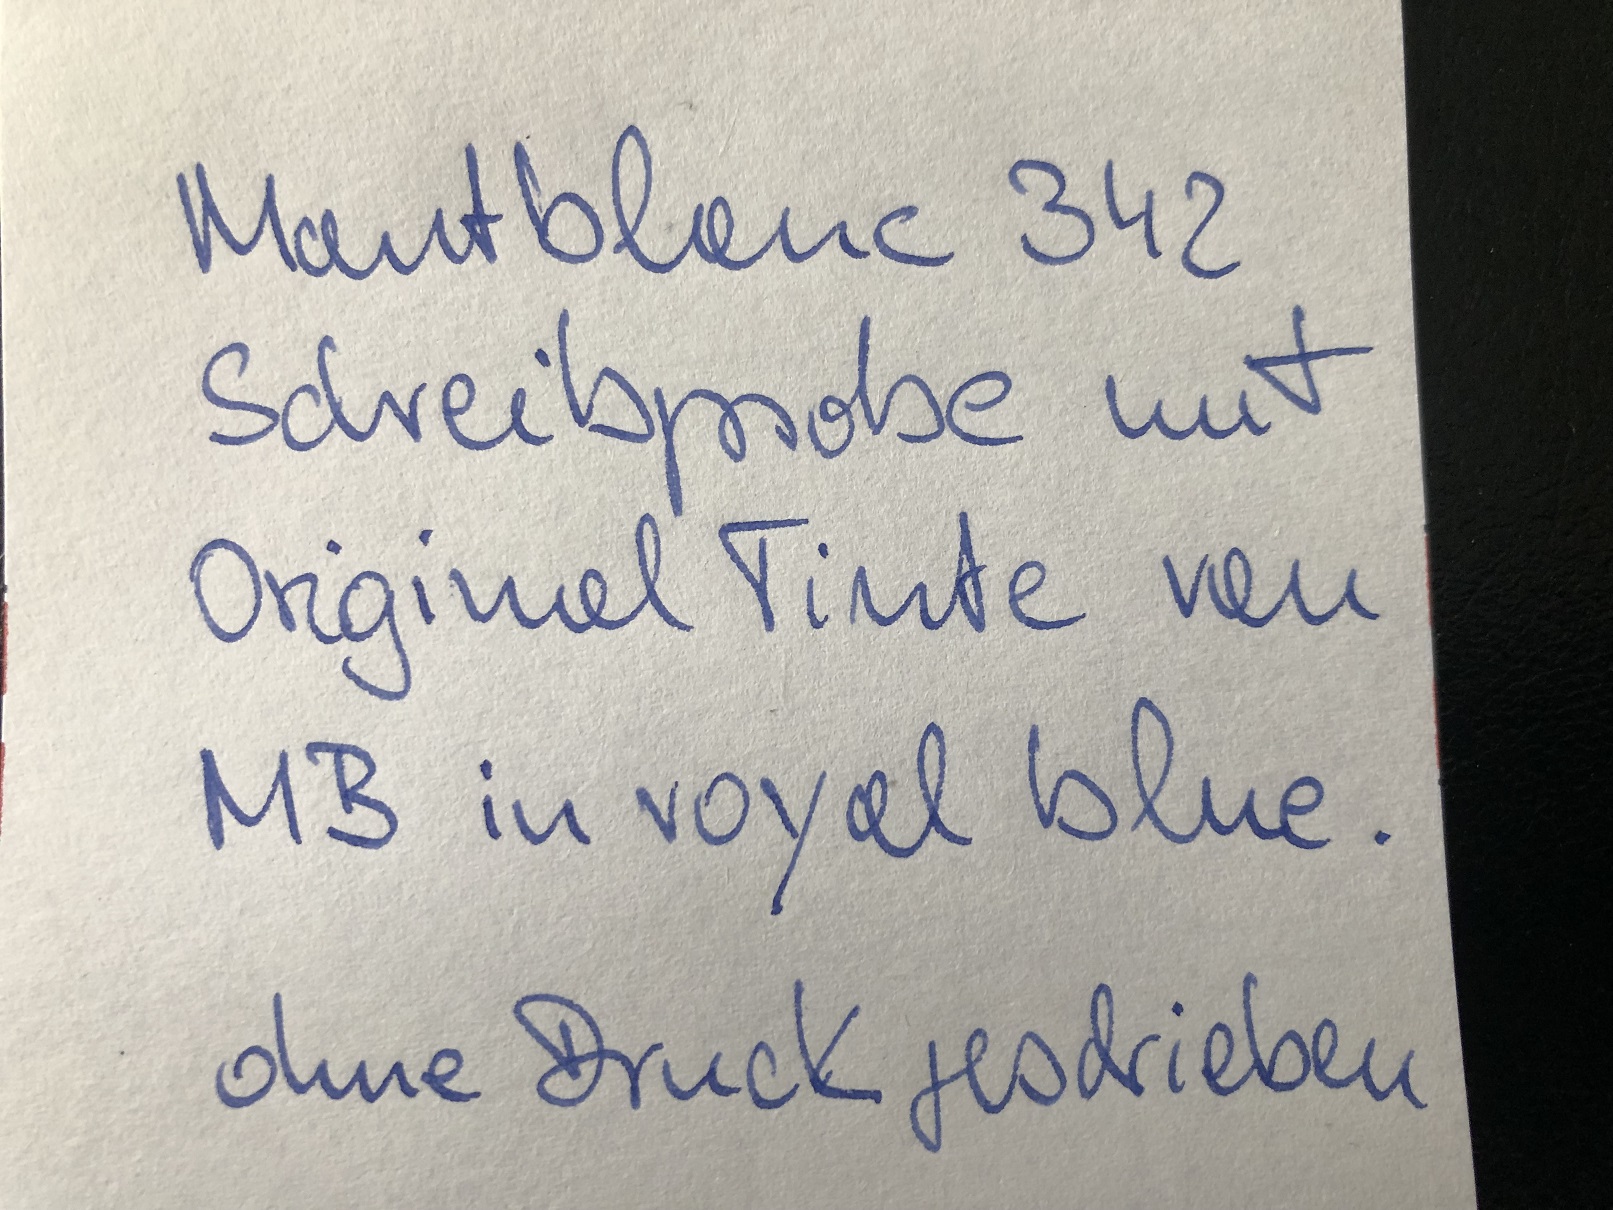 Montblanc 342
Schreibprobe mit
Original Tinte von
MB in royal blue.
ohne Druck geschrieben